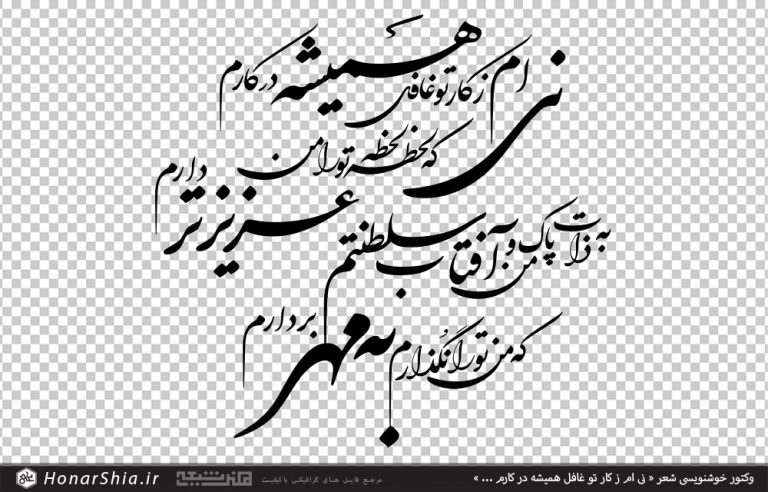 نی ام ز کار تو غافل همیشه در کارم
که لحظه لحظه تو را من عزیزتر دارم
به ذات پاک من و آفتاب سلطنتم
که من تو را نگذارم به مهر بردارم
وکتور خوشنویسی شعر « نی ام ز کار تو غافل همیشه در کارم ... »
مرجع فایل های گرافیکی باکیفیت
هنر شیعه
HonarShia.ir